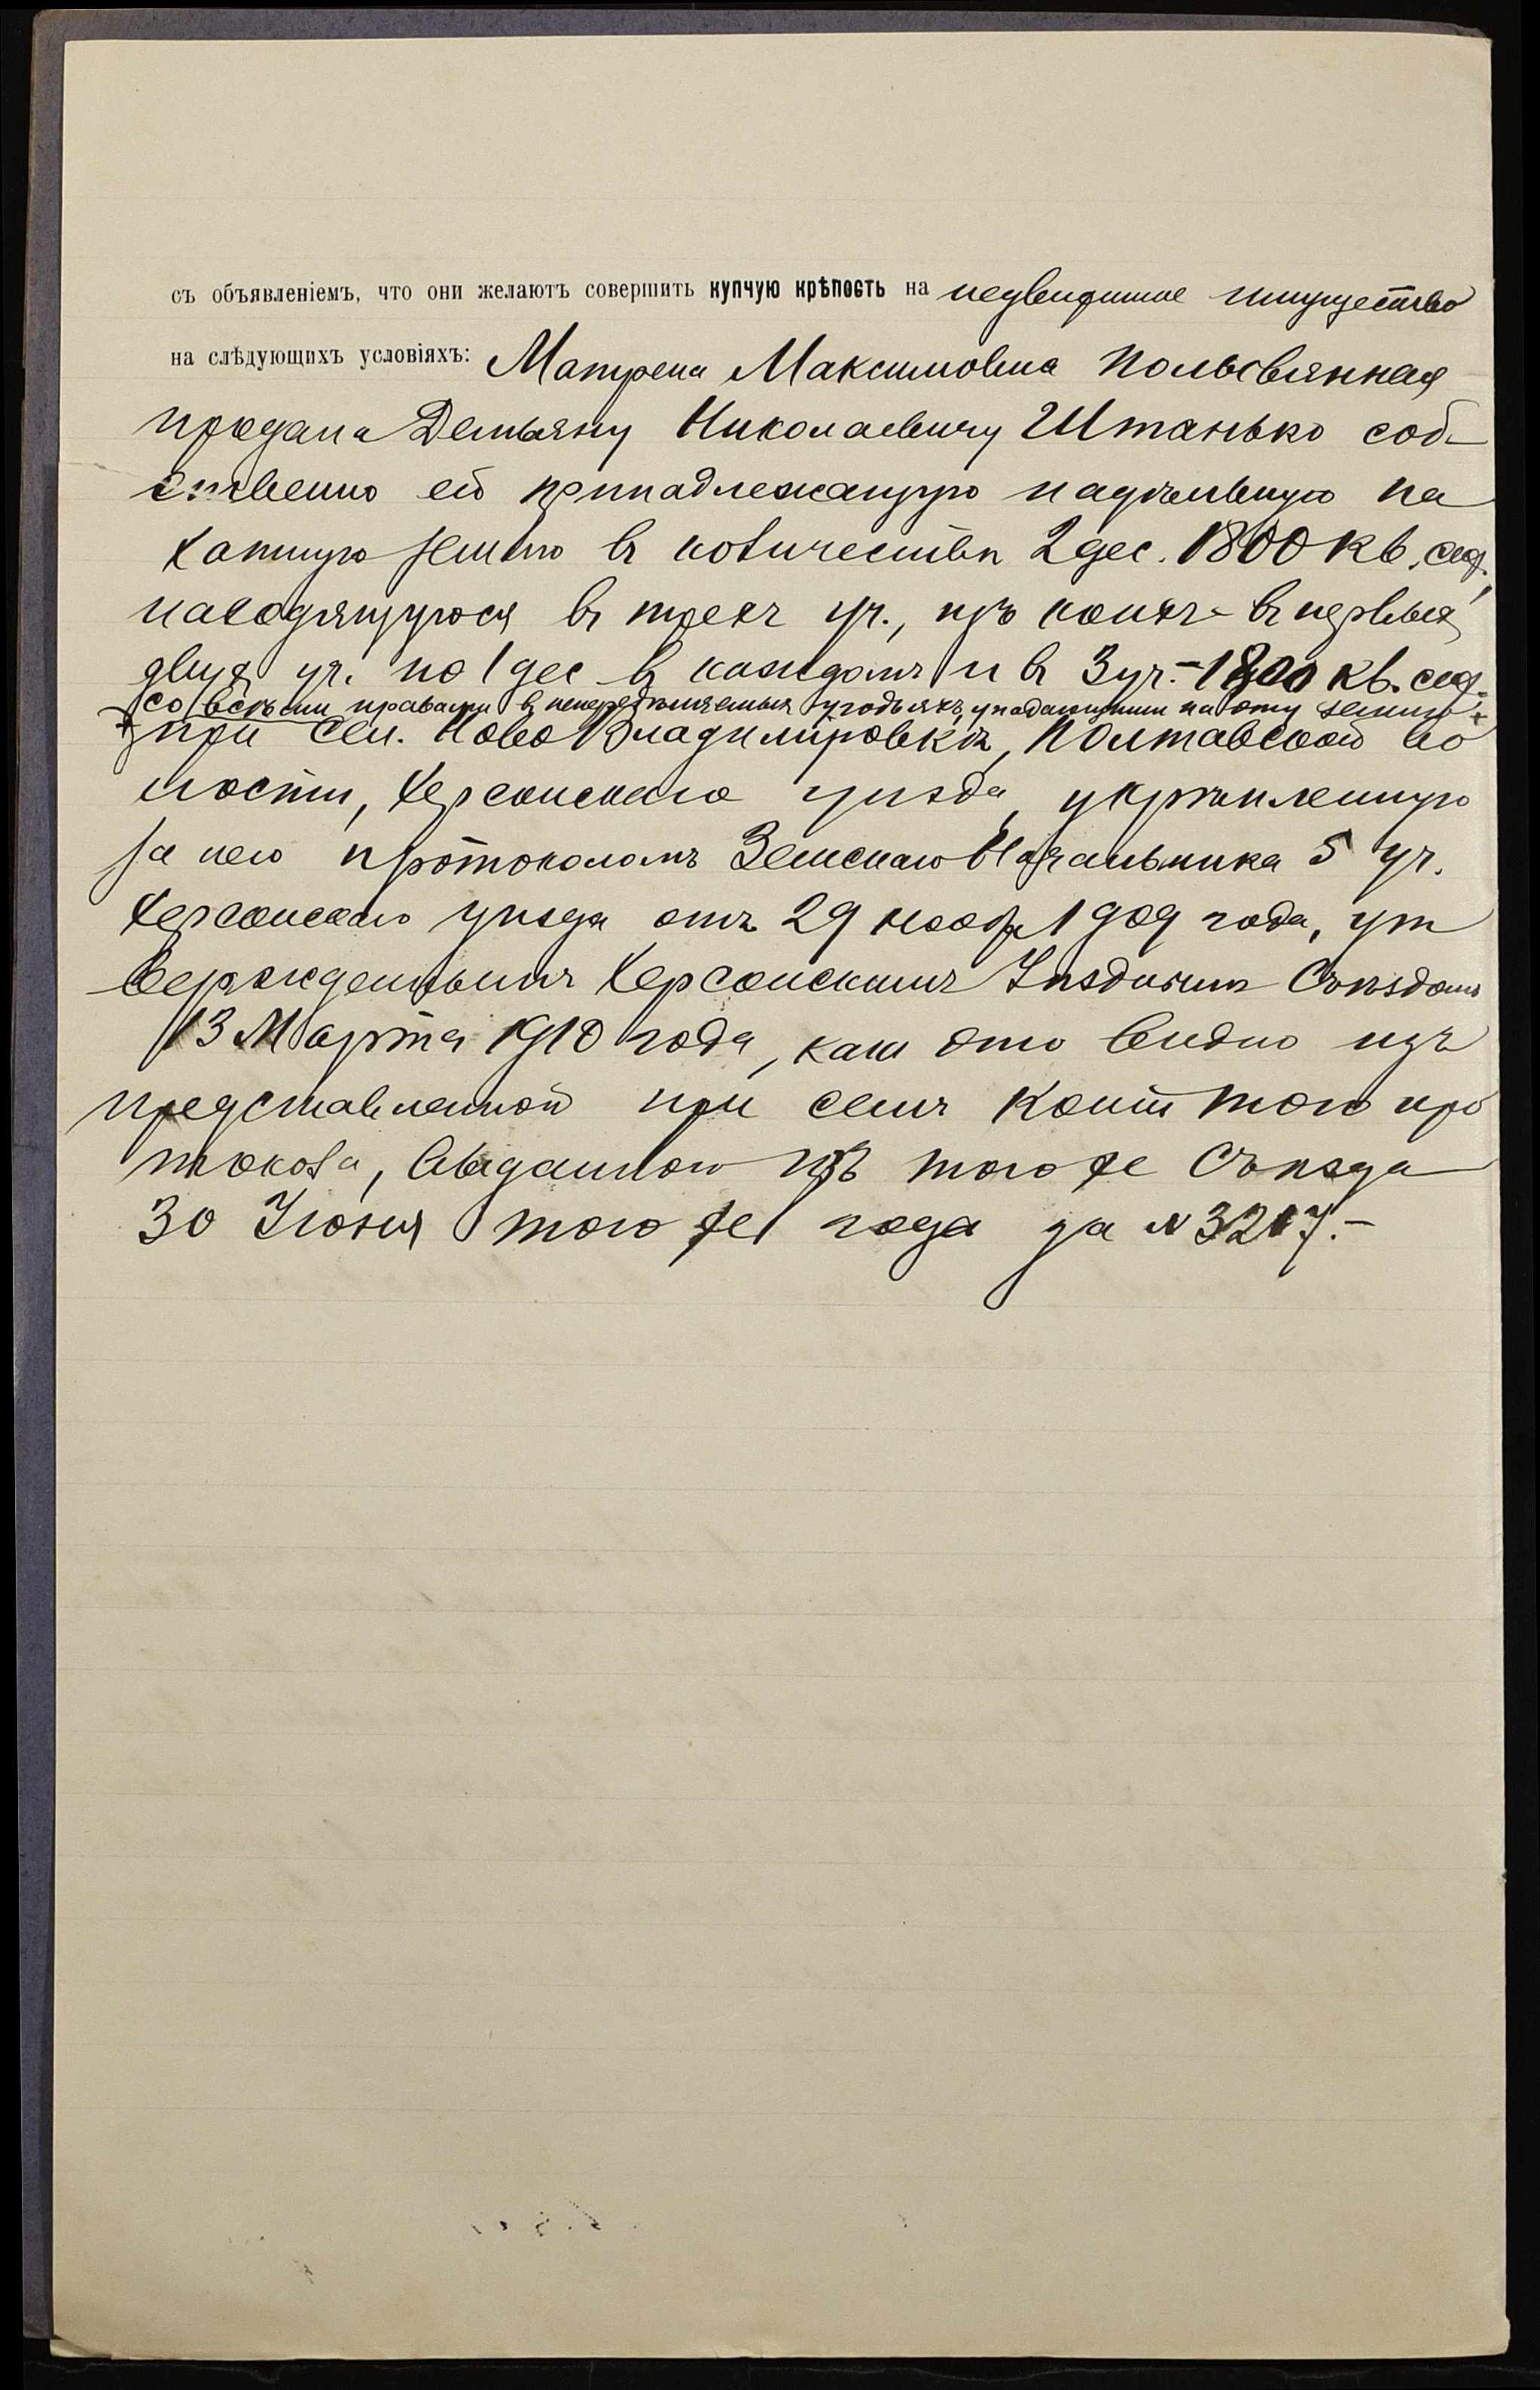 съ объявленіемъ, что они желаютъ совершить купчую крѣпость на недвижимое имущество
на слѣдующихъ условіяхъ: Матрена Максимовна
продала Демьяну Николаевичу Штанько соб-
ственно ей принадлежащую надѣльную па
хатную землю въ количествѣ 2 дес. 1800 кв. саж.,
находящуюся въ трехъ уч., изъ коихъ - въ первыхъ
двухъ уч. по 1 дес въ каждомъ и въ 3 уч. - 1800 кв. саж.
со всѣми правами въ непередѣляемыхъ угодьяхъ, упадающими на эту землю
при сел. Ново Владиміровкѣ, Полтавской во
лости, Херсонскаго уѣзда, укрѣпленную
за нею протоколомъ Земскаго Начальника 5 уч.
Херсонскаго уѣзда отъ 29 нояб. 1909 года, ут
вержденнымъ Херсонскимъ Уѣзднымъ Съѣздомъ
13 Марта 1910 года, какъ это видно изъ
представленной при семъ копіи того про
токола, выданной изъ того же Съѣзда
30 Іюня того же года за № 3217.-